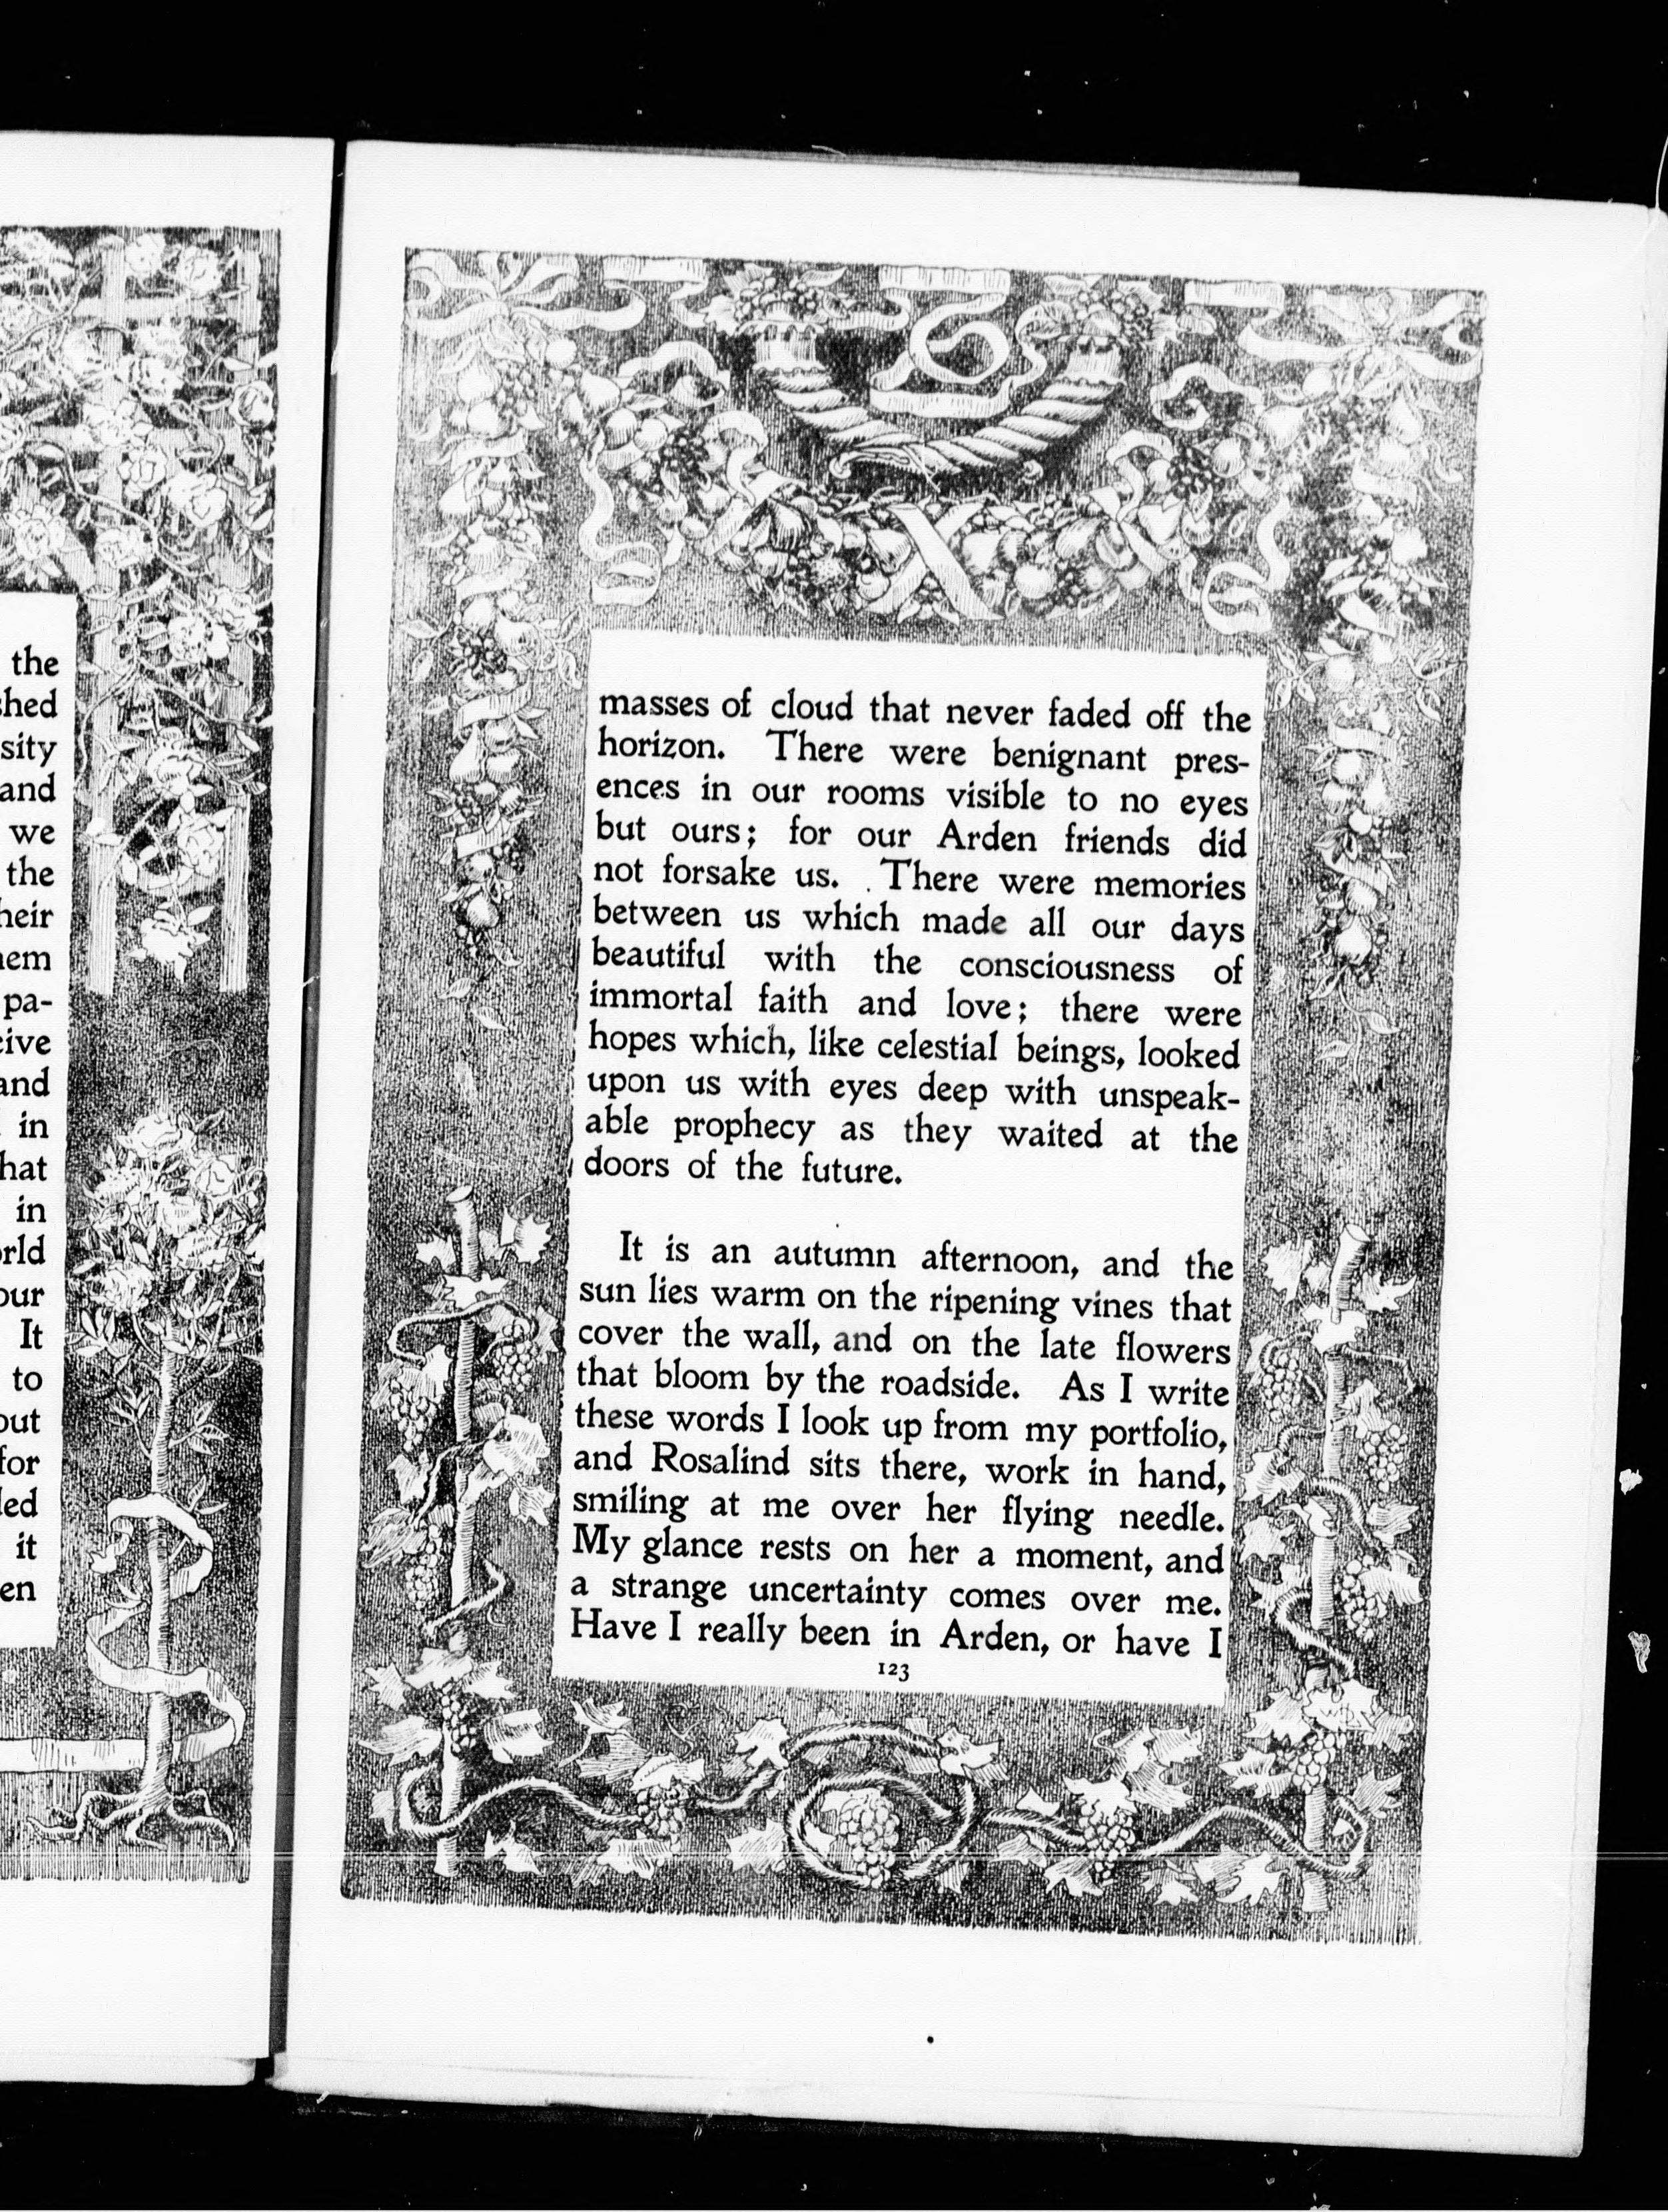 the
and
we
the
in
in
It
to
it
masses of cloud that never faded off the
horizon. There were benignant pres-
ences in our rooms visible to no eyes
but ours; for our Arden friends did
not forsake us. There were memories
between us which made all our days
beautiful with the consciousness of
immortal faith and love; there were
hopes which, like celestial beings, looked
upon us with eyes deep with unspeak-
able prophecy as they waited at the
doors of the future.
It is an autumn afternoon, and the
sun lies warm on the ripening vines that
cover the wall, and on the late flowers
that bloom by the roadside. As I write
these words I look up from my portfolio,
and Rosalind sits there, work in hand,
smiling at me over her flying needle.
My glance rests on her a moment, and
a strange uncertainty comes over me.
Have I really been in Arden, or have I
123